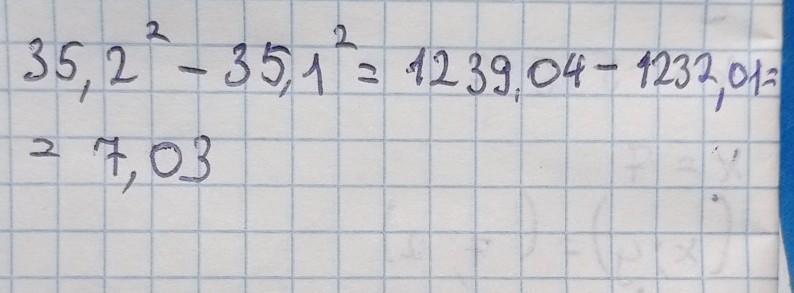 35,2² - 35,1² = 1239,04 - 1232,01 =
= 7,03